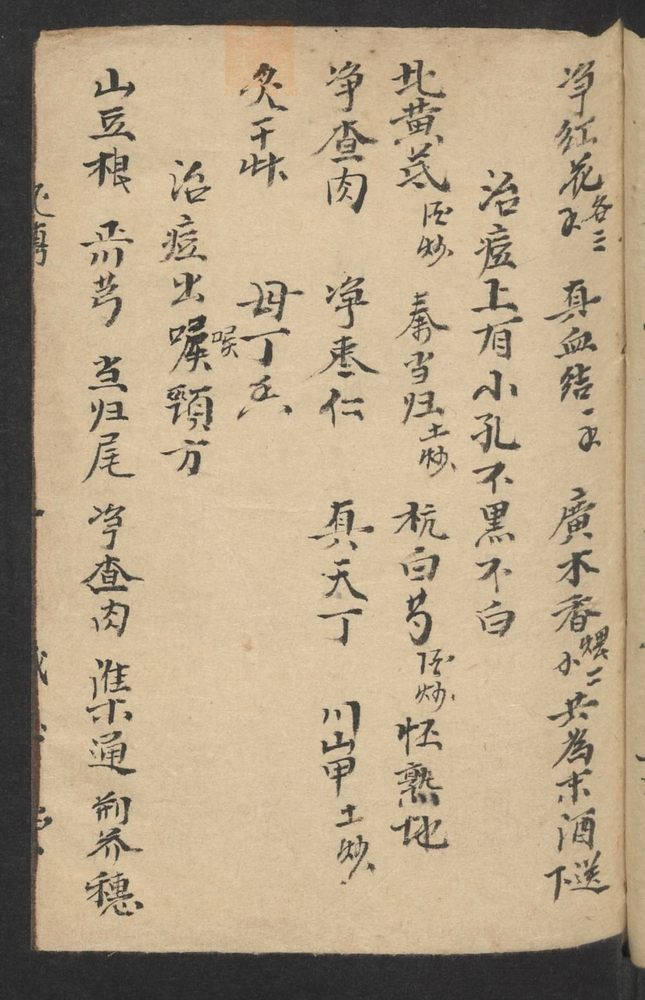 净红花各二𰁜 真血结一𰁜 廣木香煨二小 共為末酒送下
治痘上有小孔不黑不白
北黄芪酒炒 秦当归土炒 杭白芍酒炒 怀熟地
净查肉 净枣仁 真天丁 川山甲土炒
炙干草 母丁香
治痘出喉頸方
山豆根 川芎 当归尾 净查肉 淮木通 荊芥穗